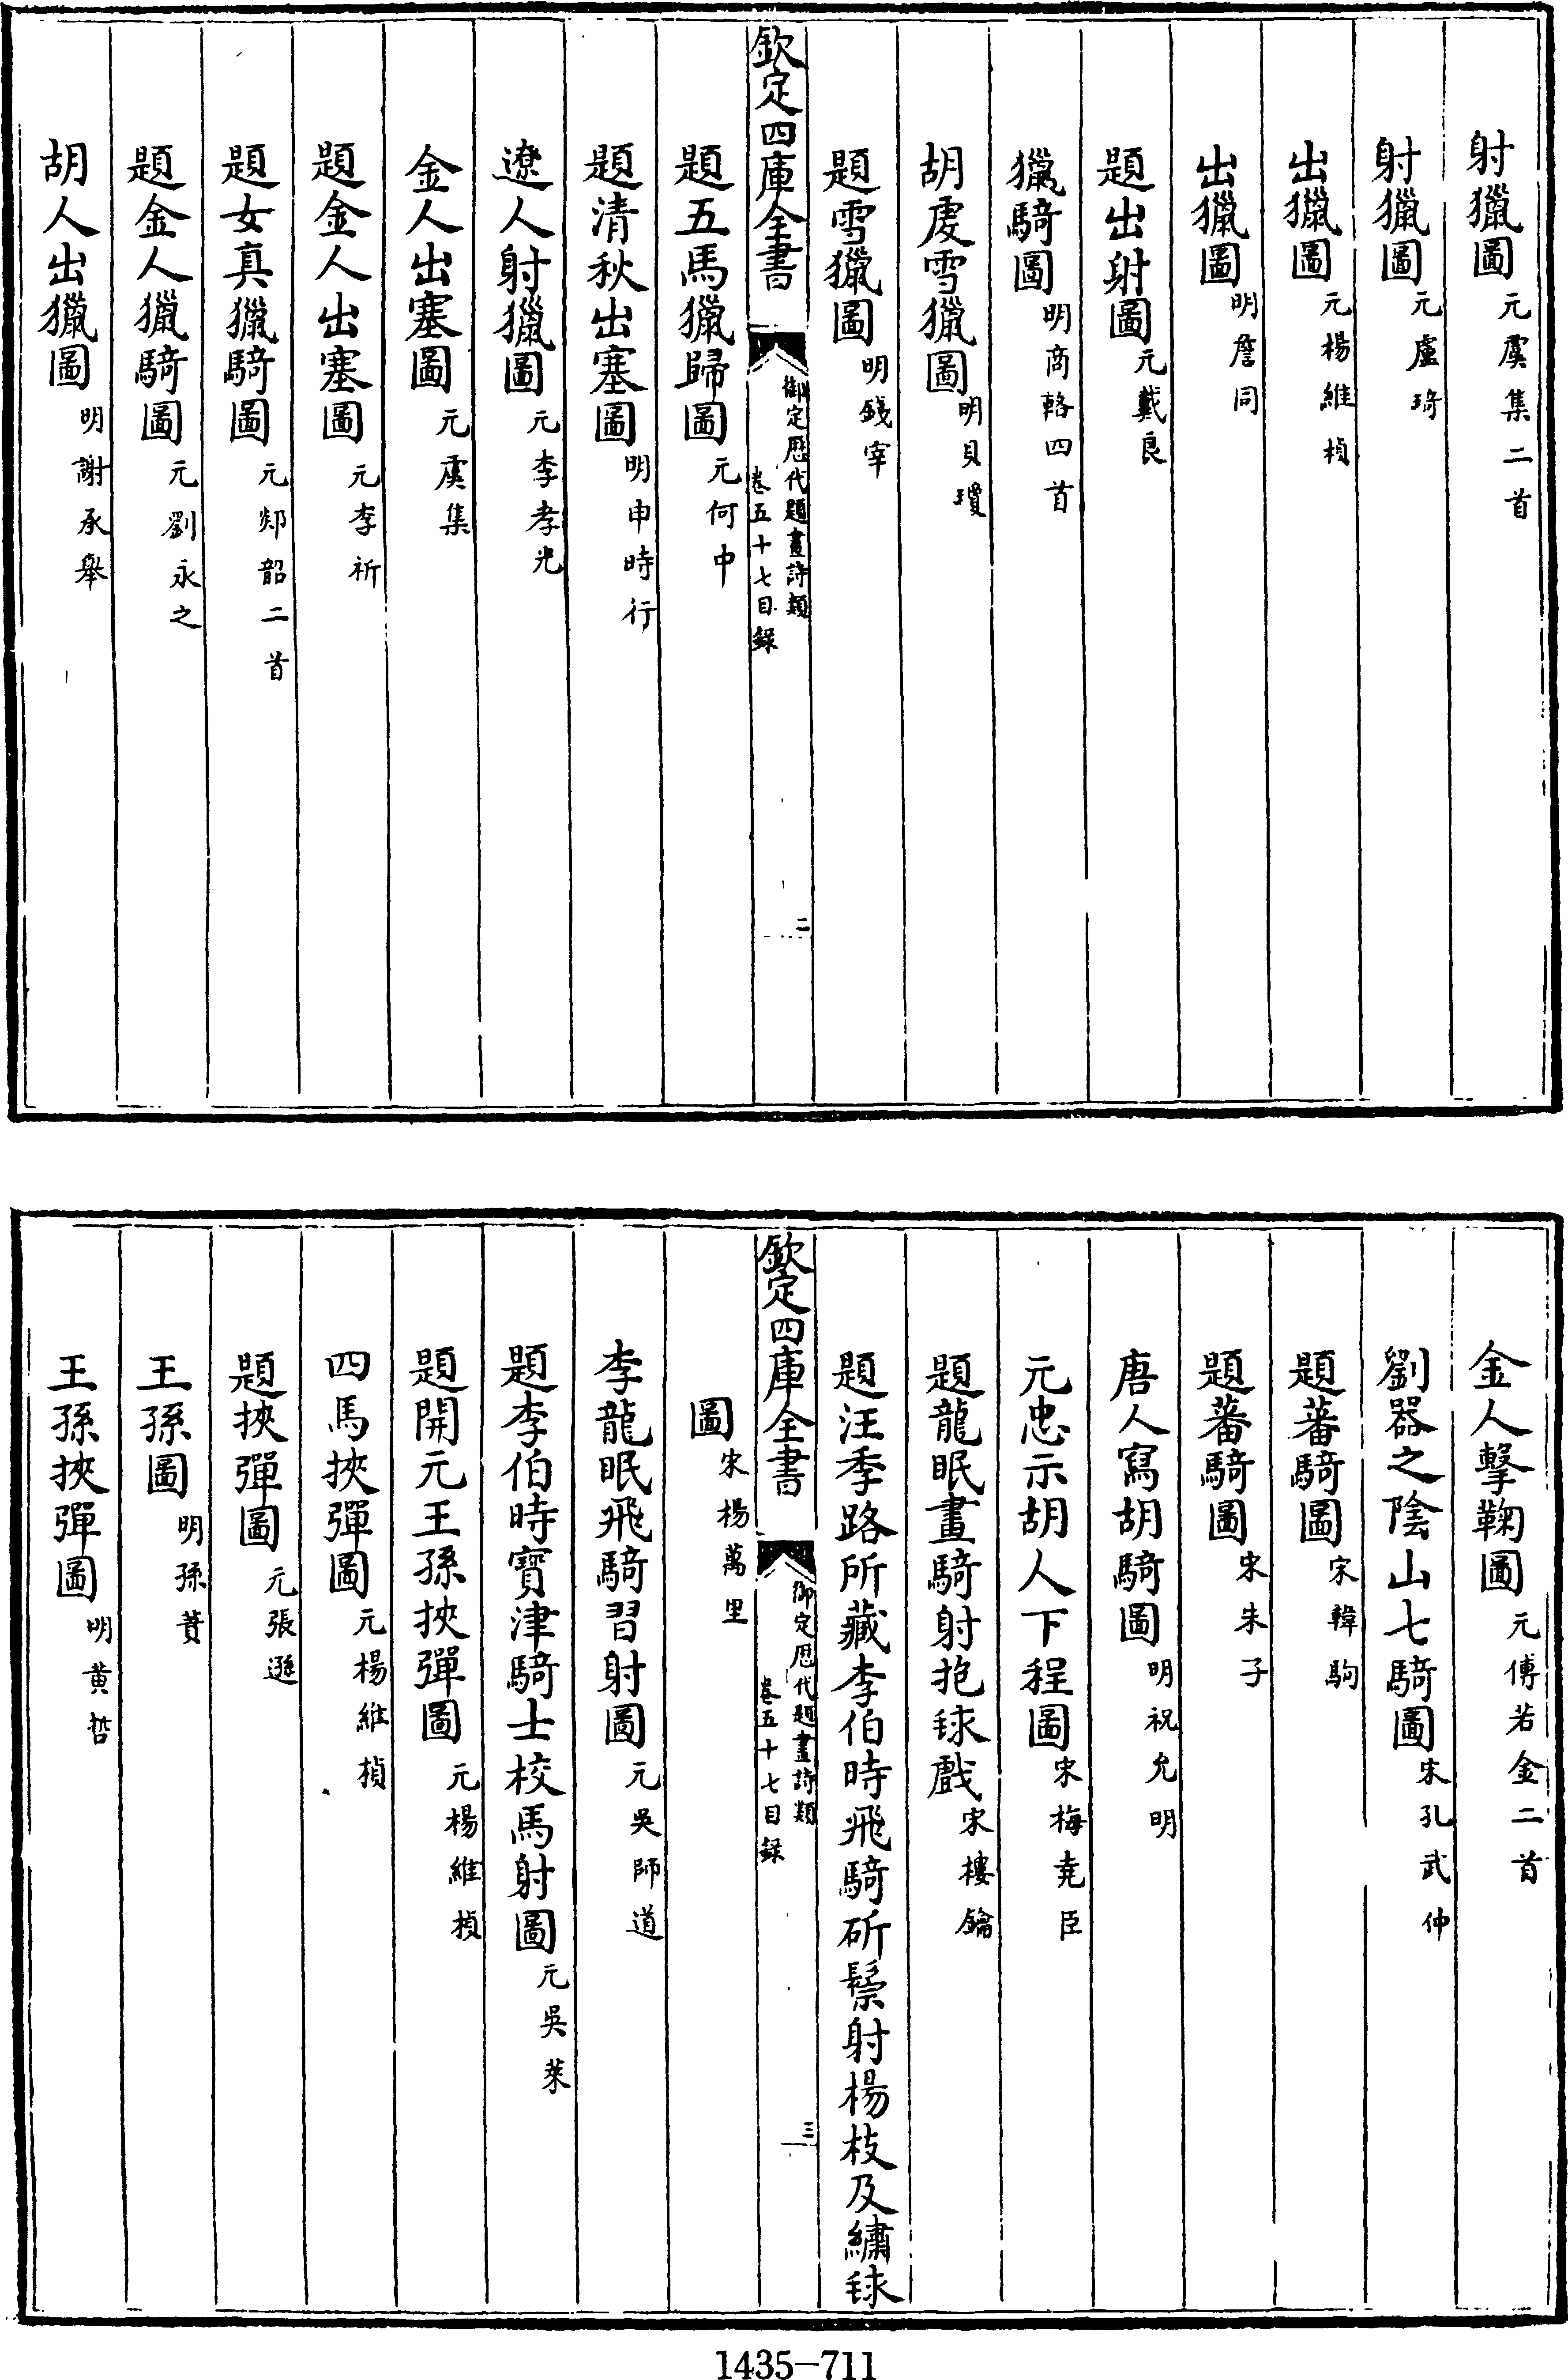 射獵圖元虞集二首
射獵圖元盧琦
出獵圖元楊維楨
出獵圖明詹同
題出射圖元戴良
獵騎圖明商輅四首
胡虔雪獵圖明貝瓊
題雪獵圖明錢宰
欽定四庫全書
御定歷代題畫詩類
卷五十七目錄
二
題五馬獵歸圖元何中
題清秋出塞圖明申時行
遼人射獵圖元李孝光
金人出塞圖元虞集
題金人出塞圖元李祈
題女真獵騎圖元郯韶二首
題金人獵騎圖元劉永之
胡人出獵圖明謝承舉
金人擊鞠圖元傅若金二首
劉器之陰山七騎圖宋孔武仲
題蕃騎圖宋韓駒
題蕃騎圖宋朱子
唐人寫胡騎圖明祝允明
元忠示胡人下程圖宋梅堯臣
題龍眠畫騎射抱毬戲宋樓鑰
題汪季路所藏李伯時飛騎斫鬃射楊枝及繡毬
欽定四庫全書
御定歷代題畫詩類
卷五十七目錄
三
圖宋楊萬里
李龍眠飛騎習射圖元吳師道
題李伯時寶津騎士校馬射圖元吳萊
題開元王孫挾彈圖元楊維楨
四馬挾彈圖元楊維楨
題挾彈圖元張遜
王孫圖明孫蕡
王孫挾彈圖明黄哲
1435-711